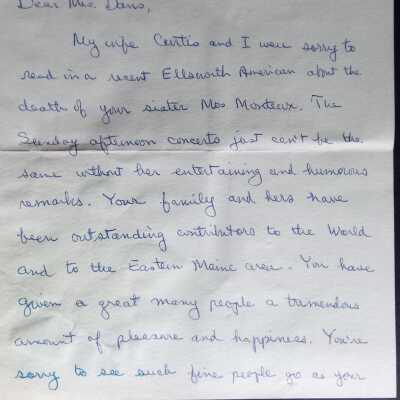 Dear Mrs. Davis,
My wife Curtis and I were sorry to
read in a recent Ellsworth American about the
death of your sister Mrs Monteux. The
Sunday afternoon concerts just can't be the
same without her entertaining and humorous
remarks. Your family and hers have
been outstanding contributors to the World
and to the Eastern Maine area. You have
given a great many people a tramendous
amount of pleasure and happiness. You're
sorry to see such fine people go as your